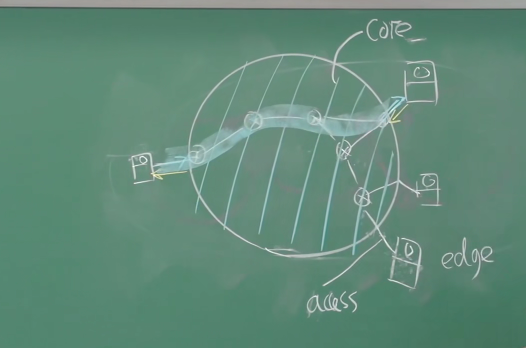 core
edge
acess